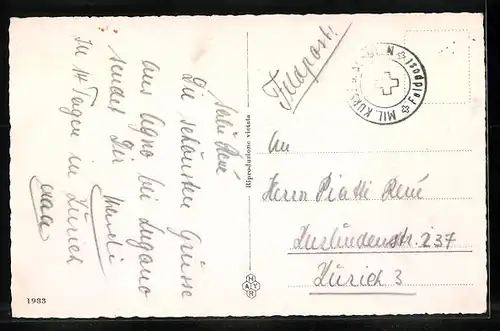 Salü René
Die schönsten Grüsse
aus Agno bei Lugano
sendet Dir
In 14 Tagen in Zürich
Riproduzione vietata
1983
Feldpost.
Feldpost MIL. KURS
An
Herrn Piatti René
Zurlindenstr. 237
Zürich 3